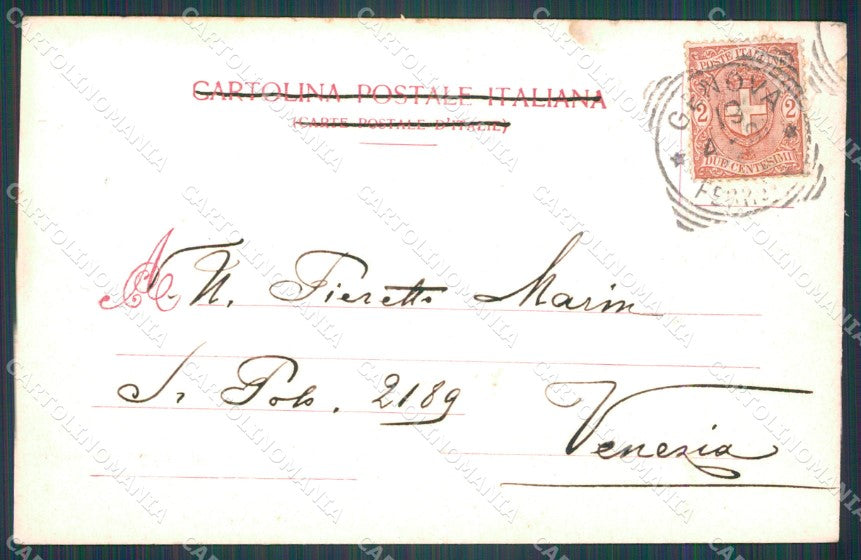 CARTOLINA POSTALE ITALIANA
(CARTE POSTALE D'ITALIE)
POSTE ITALIANE
2 2
DUE CENTESIMI
GENOVA
FERROVIA
A N. N. Fieretto Marin
S. Polo. 2189
Venezia
CARTOLINOMANIA